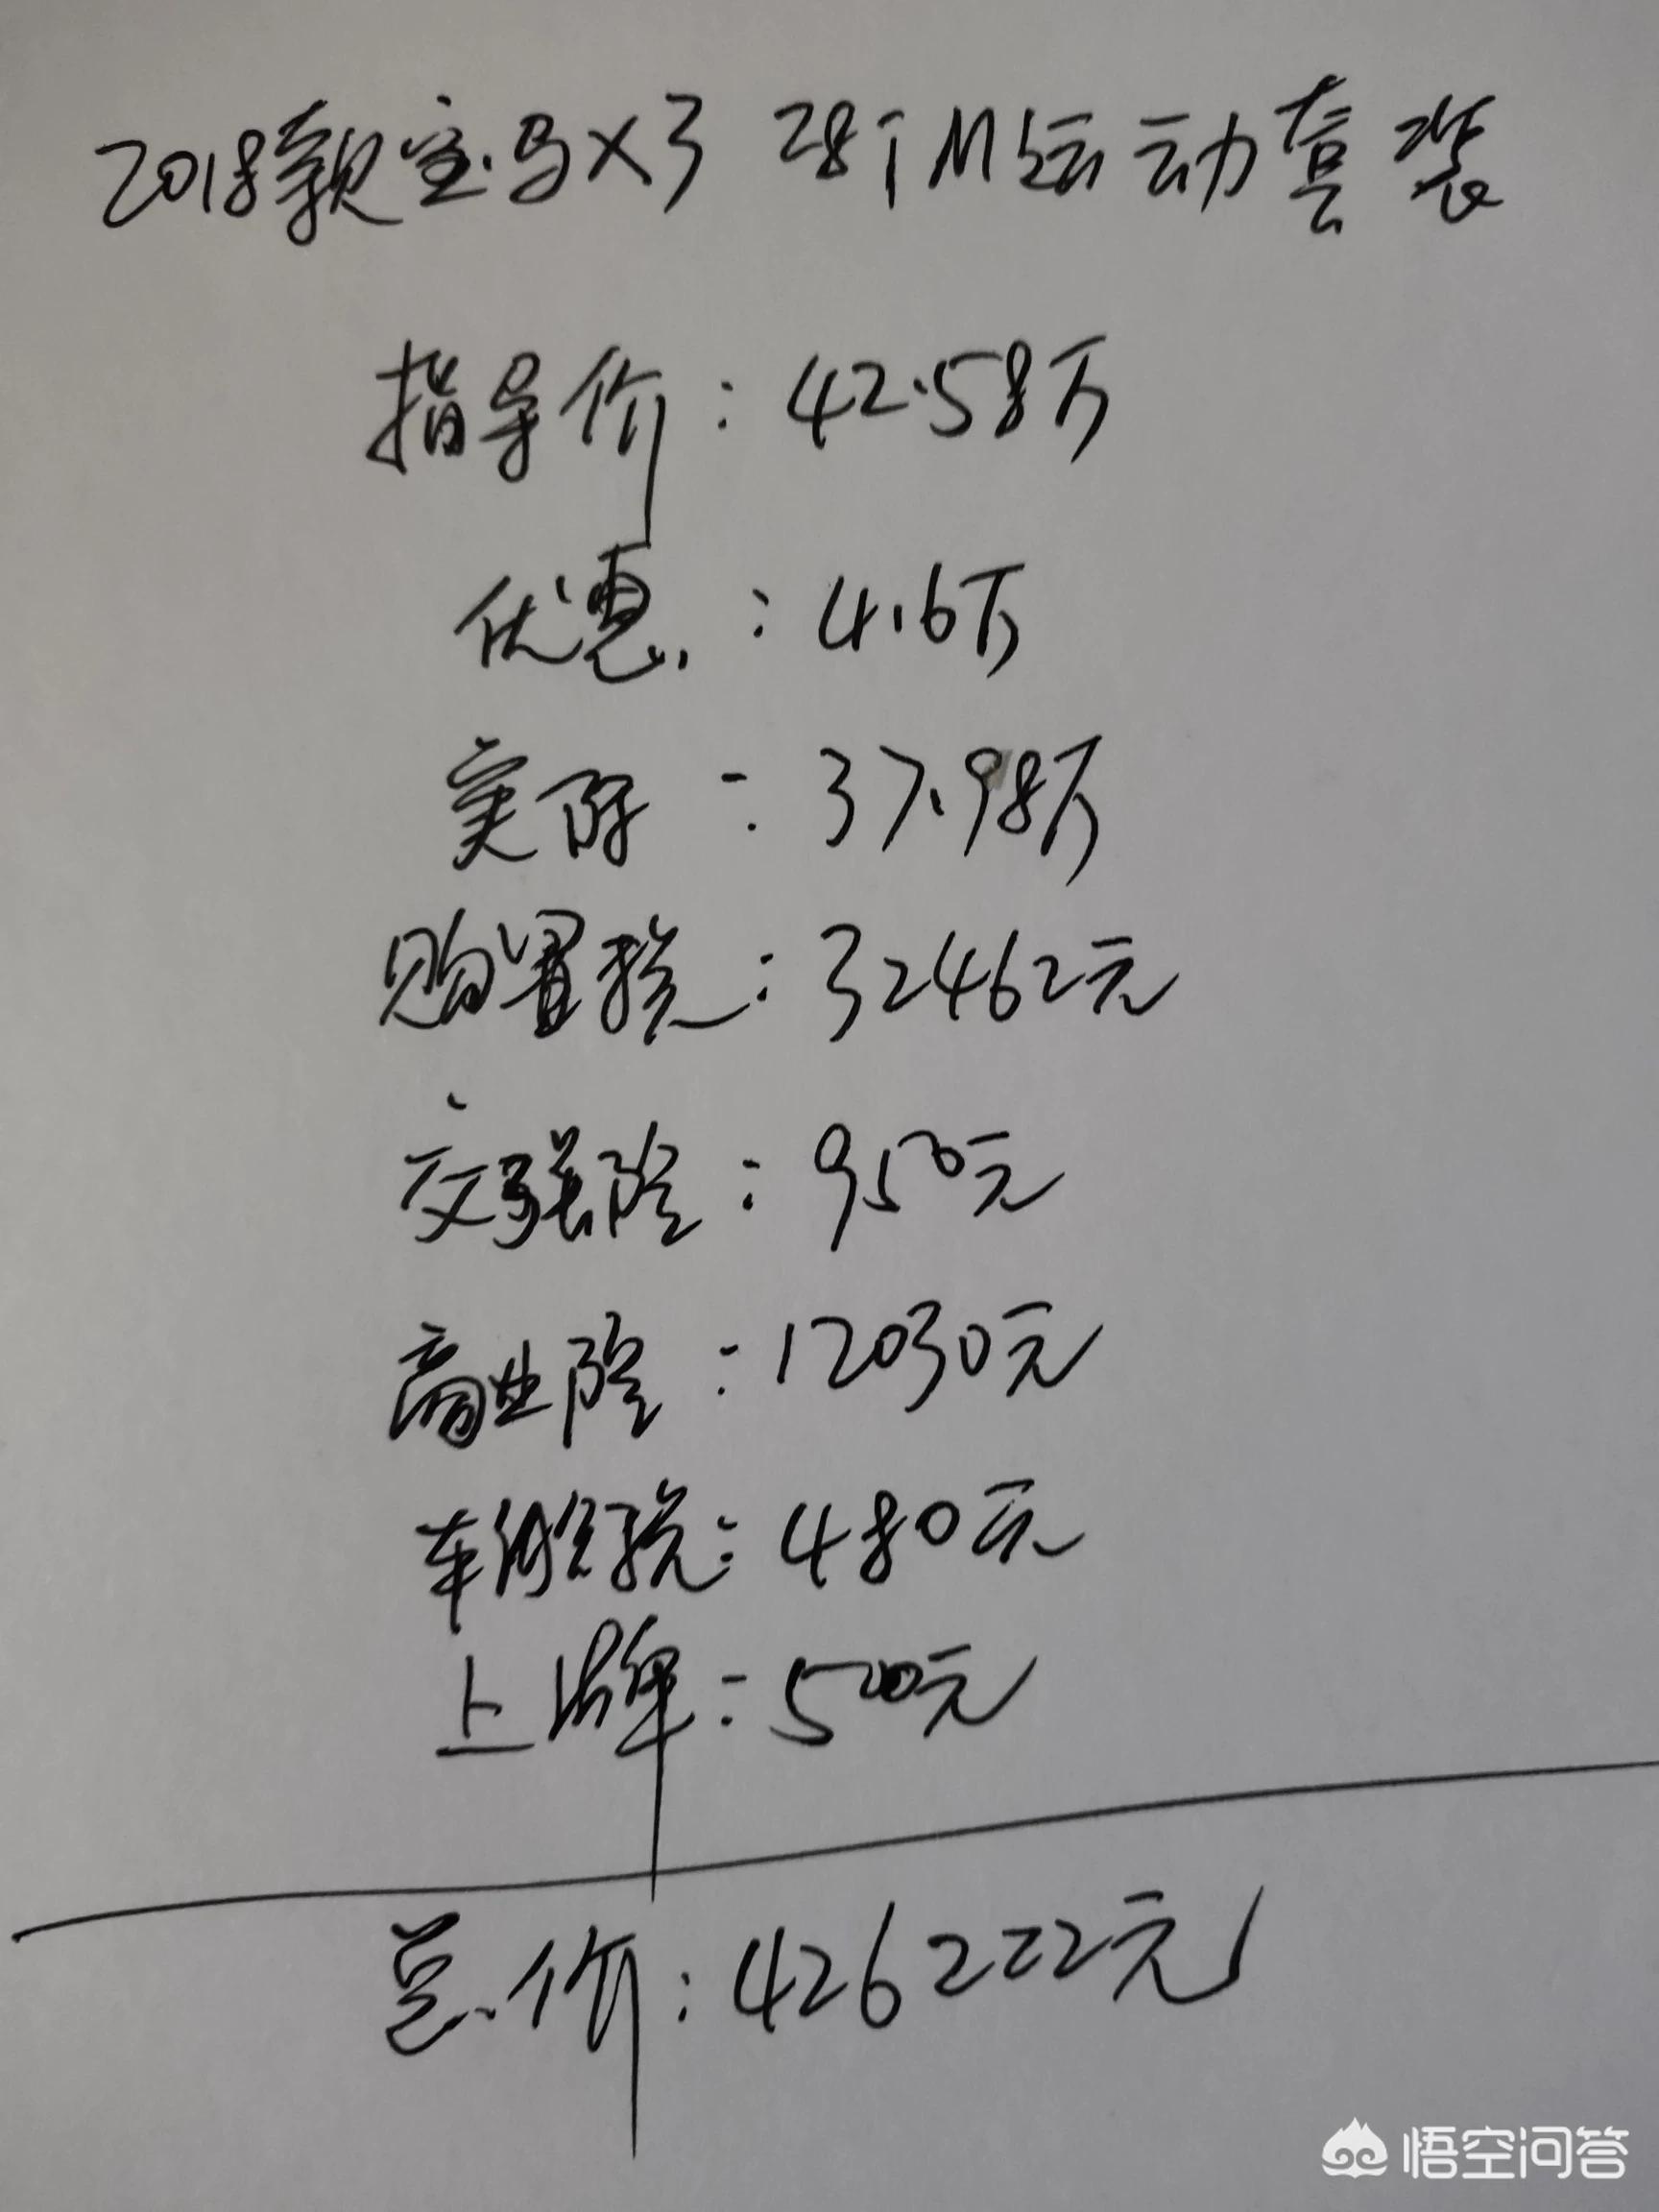 2018款宝马X3 28i M运动套装
指导价：42.58万
优惠：4.6万
实际：37.98万
购置税：32462元
交强险：950元
商业险：12030元
车船税：480元
上牌：500元
总价：426222元
悟空问答